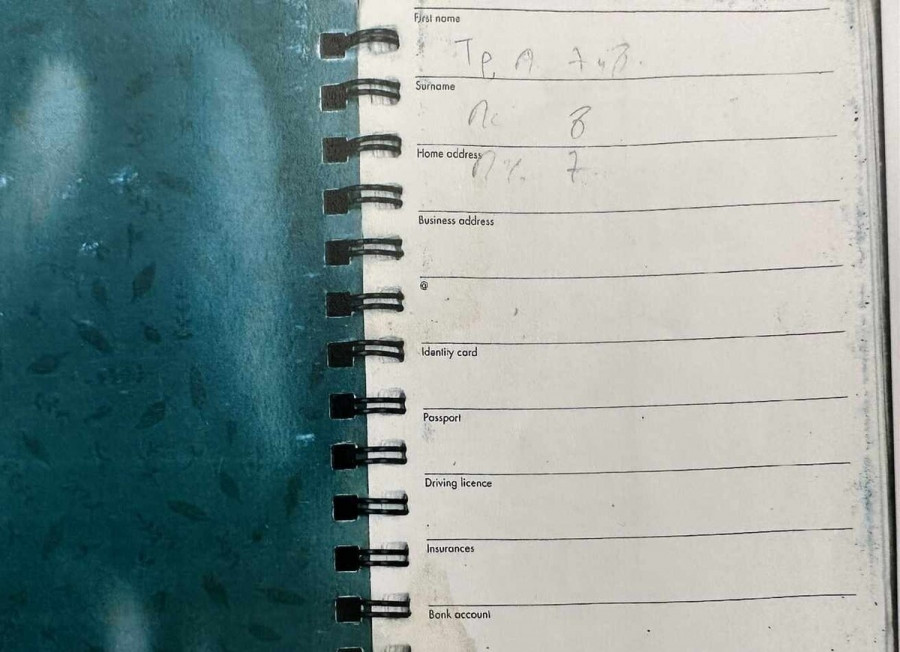 First name
Surname
Home address
Business address
@
Identity card
Passport
Driving licence
Insurances
Bank account